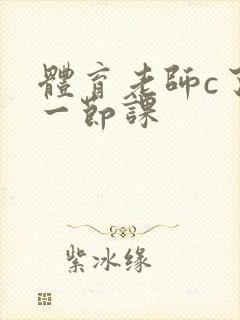 體育老師c了
一節課
紫冰缘